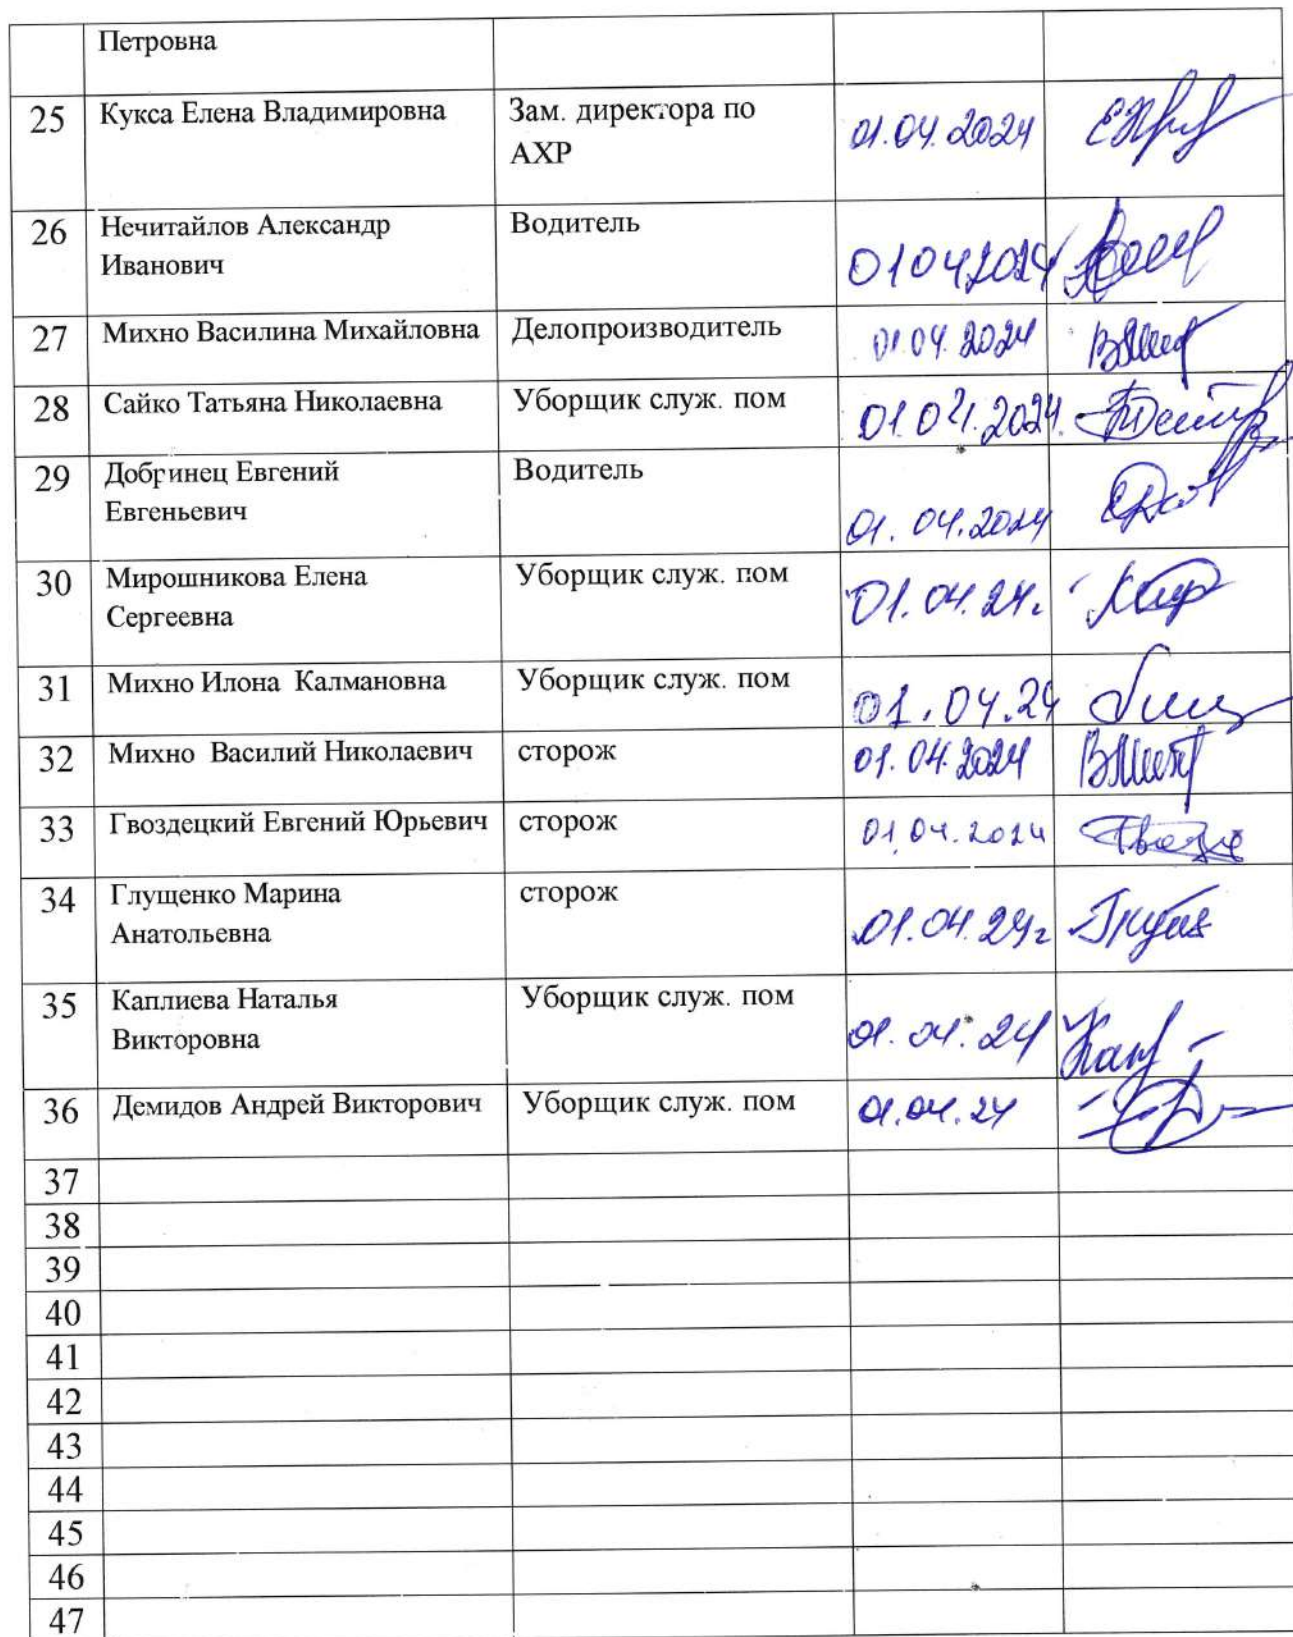 Петровна
25 Кукса Елена Владимировна Зам. директора по 01.04.2024
АХР
26 Нечитайлов Александр Водитель
Иванович 01042024
27 Михно Василина Михайловна Делопроизводитель 01.04.2024
28 Сайко Татьяна Николаевна Уборщик служ. пом 01.04.2024.
29 Добринец Евгений Водитель
Евгеньевич 01.04.2024
30 Мирошникова Елена Уборщик служ. пом 01.04.24г.
Сергеевна
31 Михно Илона Калмановна Уборщик служ. пом 01.04.24
32 Михно Василий Николаевич сторож 01.04.2024
33 Гвоздецкий Евгений Юрьевич сторож 01.04.2024
34 Глущенко Марина сторож
Анатольевна 01.04.24г
35 Каплиева Наталья Уборщик служ. пом
Викторовна 01.04.24
36 Демидов Андрей Викторович Уборщик служ. пом 01.04.24
37
38
39
40
41
42
43
44
45
46
47